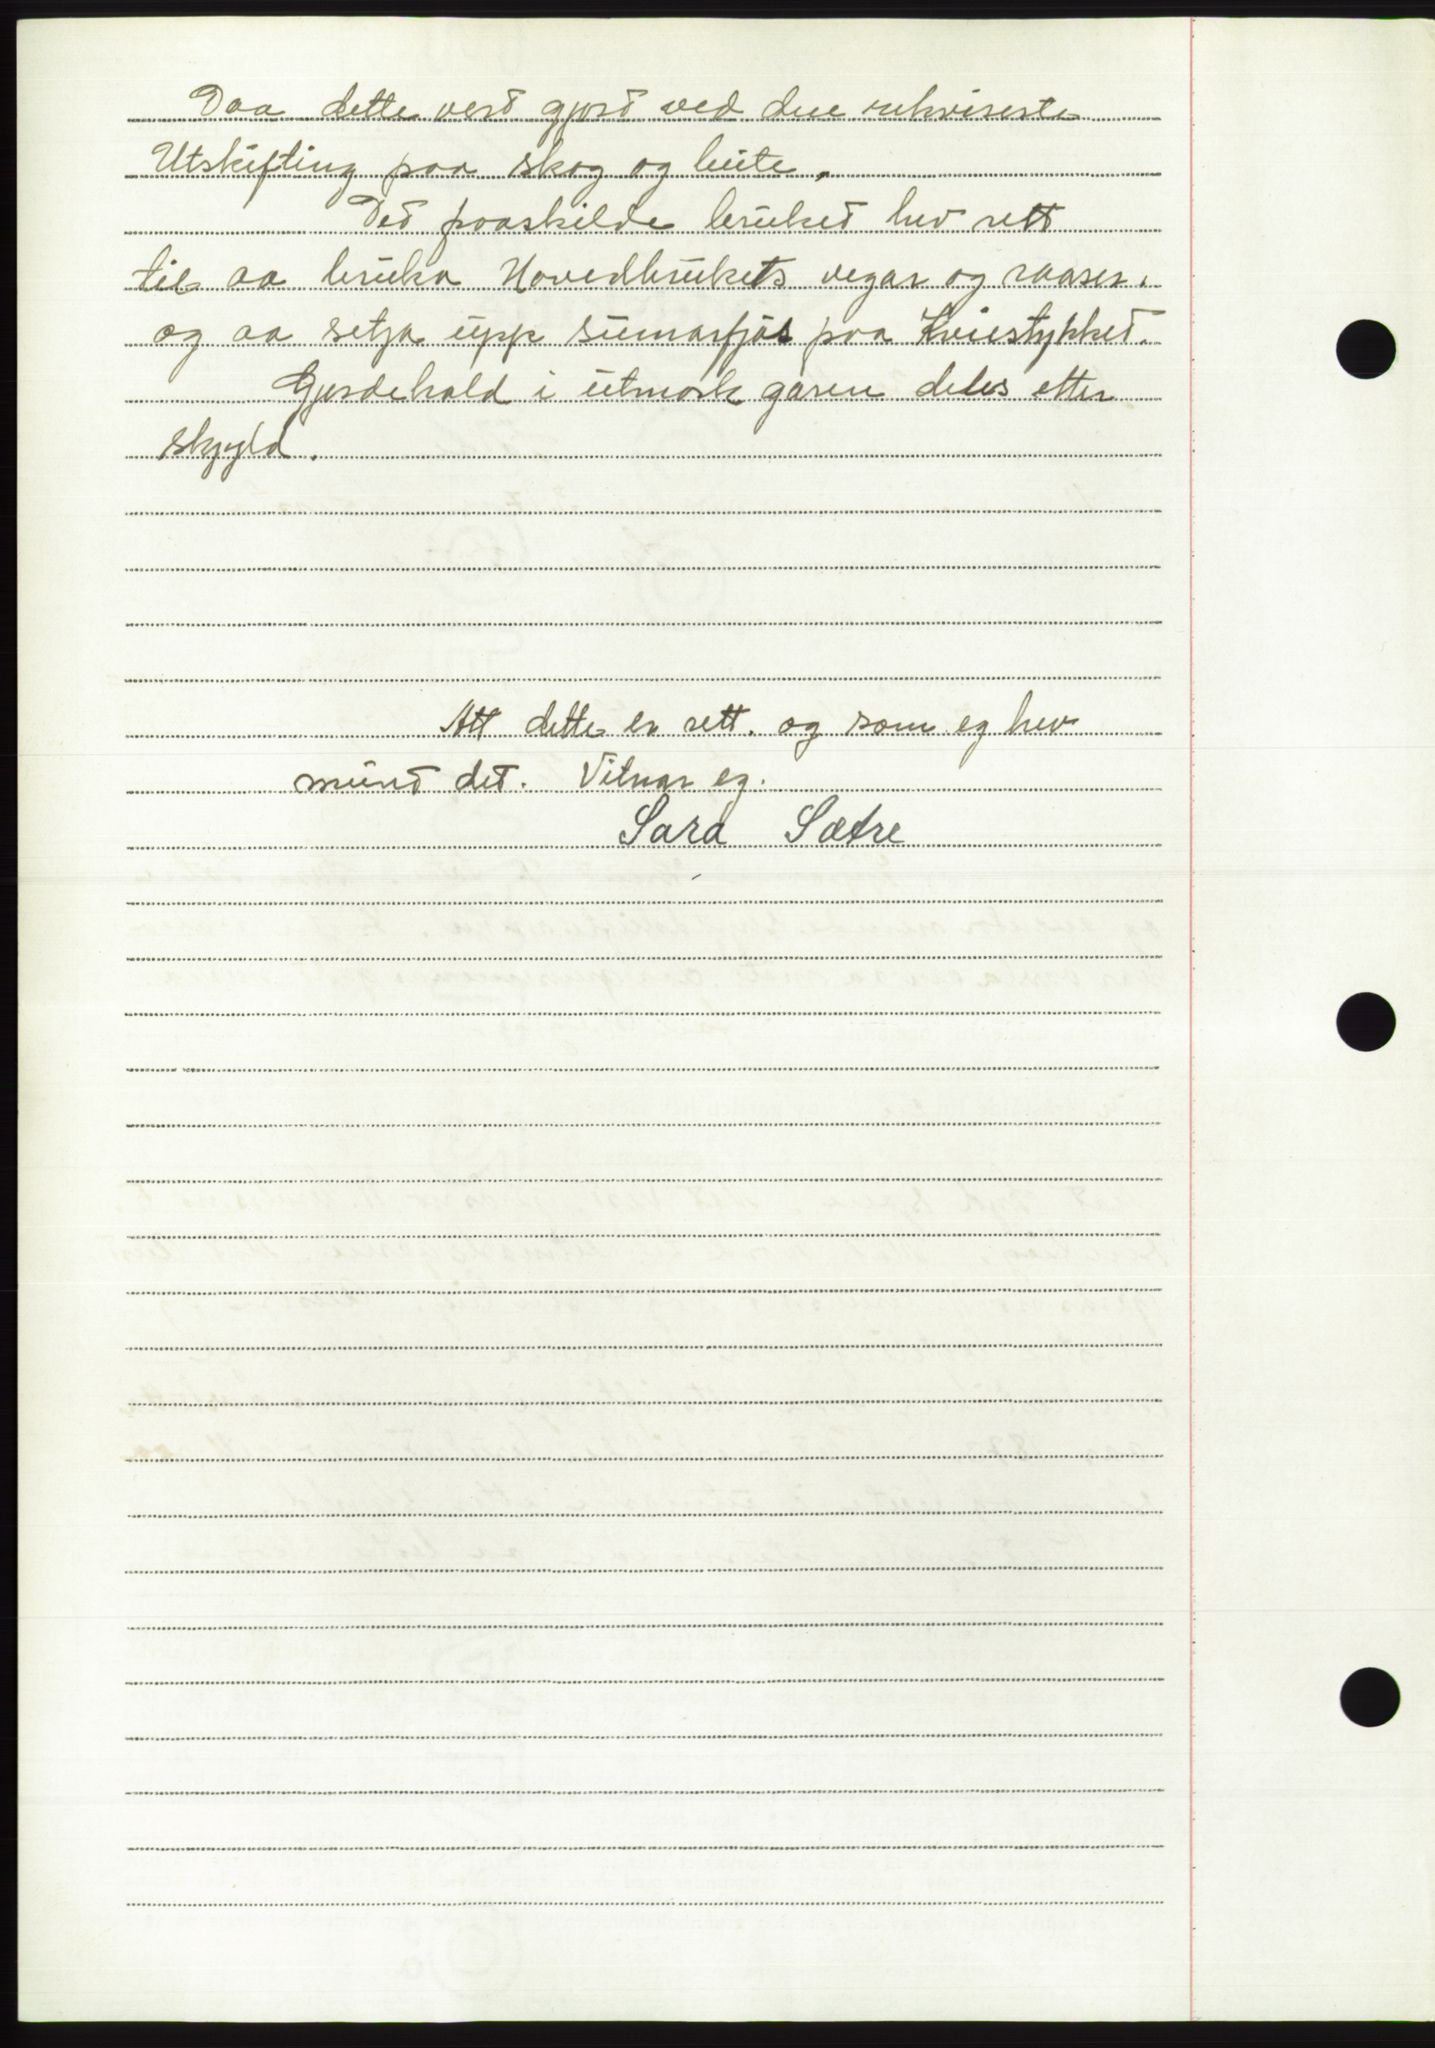 Daa dette vert gjort ved den rekvireste
Utskifting paa skog og beite.
Det fraaskilde bruket hev rett
til aa bruka Hovedbrukets vegar og raaser.
og aa setja upp sumarfjøs paa Kviestykket.
Gjerdehald i utmark garen deles etter
skyld.
Att dette er rett. og som eg hev
meint det. Vitnar eg.
Sara Sætre